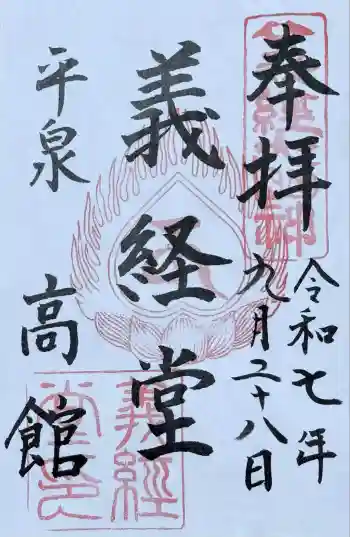 奉拝
令和七年
九月二十八日
義経堂
平泉
高館